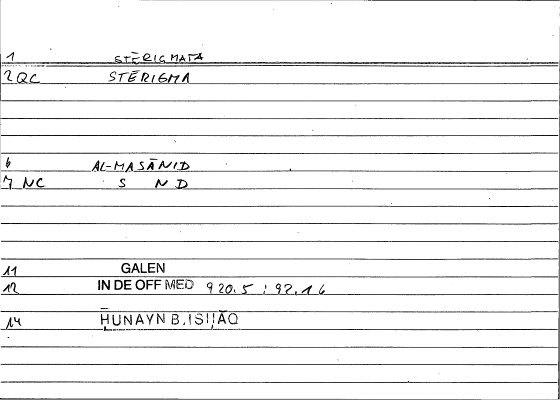 1 STĒRIGMATA
2 QC STĒRIGMA
6 AL-MASĀNID
7 NC S N D
11 GALEN
12 IN DE OFF MED 920.5 ; 92.16
14 ḤUNAYN B. ISḤĀQ